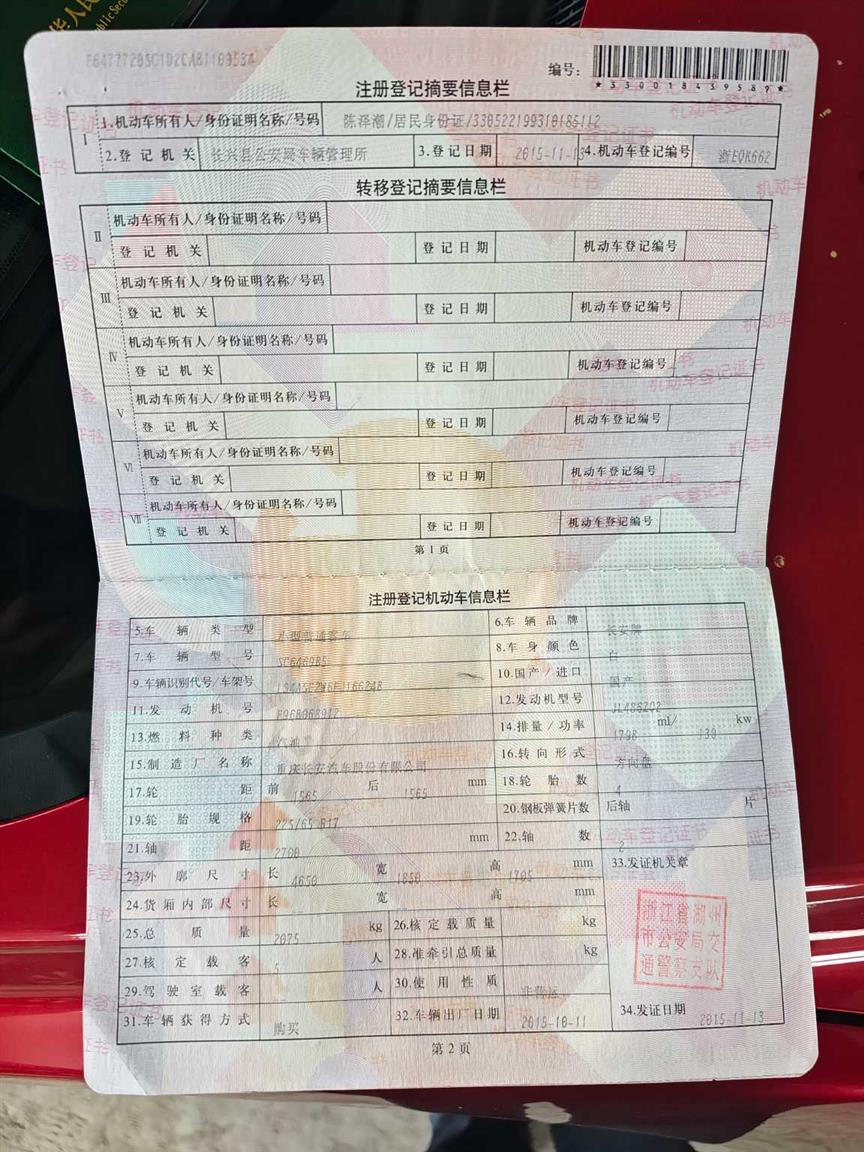 华人民
Public Sec
编号：
*330018439589*
注册登记摘要信息栏
I 1.机动车所有人/身份证明名称/号码 陈泽潮/居民身份证/330522199310185112
2.登记机关 长兴县公安局车辆管理所 3.登记日期 2015-11-13 4.机动车登记编号 浙EQK662
转移登记摘要信息栏
II 机动车所有人/身份证明名称/号码
登记机关 登记日期 机动车登记编号
III 机动车所有人/身份证明名称/号码
登记机关 登记日期 机动车登记编号
IV 机动车所有人/身份证明名称/号码
登记机关 登记日期 机动车登记编号
V 机动车所有人/身份证明名称/号码
登记机关 登记日期 机动车登记编号
VI 机动车所有人/身份证明名称/号码
登记机关 登记日期 机动车登记编号
VII 机动车所有人/身份证明名称/号码
登记机关 登记日期 机动车登记编号
第1页
注册登记机动车信息栏
5.车辆类型 小型普通客车 6.车辆品牌 长安牌
7.车辆型号 SC6469B5 8.车身颜色 白
9.车辆识别代号/车架号 10.国产/进口 国产
11.发动机号 12.发动机型号 JL486ZQ2
13.燃料种类 汽油 14.排量/功率 1798 ml/ 130 kw
15.制造厂名称 重庆长安汽车股份有限公司 16.转向形式 方向盘
17.轮距 前 1565 后 1565 mm 18.轮胎数 4
19.轮胎规格 225/65 R17 20.钢板弹簧片数 后轴 片
21.轴距 2700 mm 22.轴数 2
23.外廓尺寸 长 4650 宽 1850 高 1705 mm 33.发证机关章
24.货厢内部尺寸 长 宽 高 mm
浙江省湖州
市公安局交
通警察支队
25.总质量 2075 kg 26.核定载质量 kg
27.核定载客 5 人 28.准牵引总质量 kg
29.驾驶室载客 人 30.使用性质 非营运
31.车辆获得方式 购买 32.车辆出厂日期 2015-10-11 34.发证日期 2015-11-13
第2页